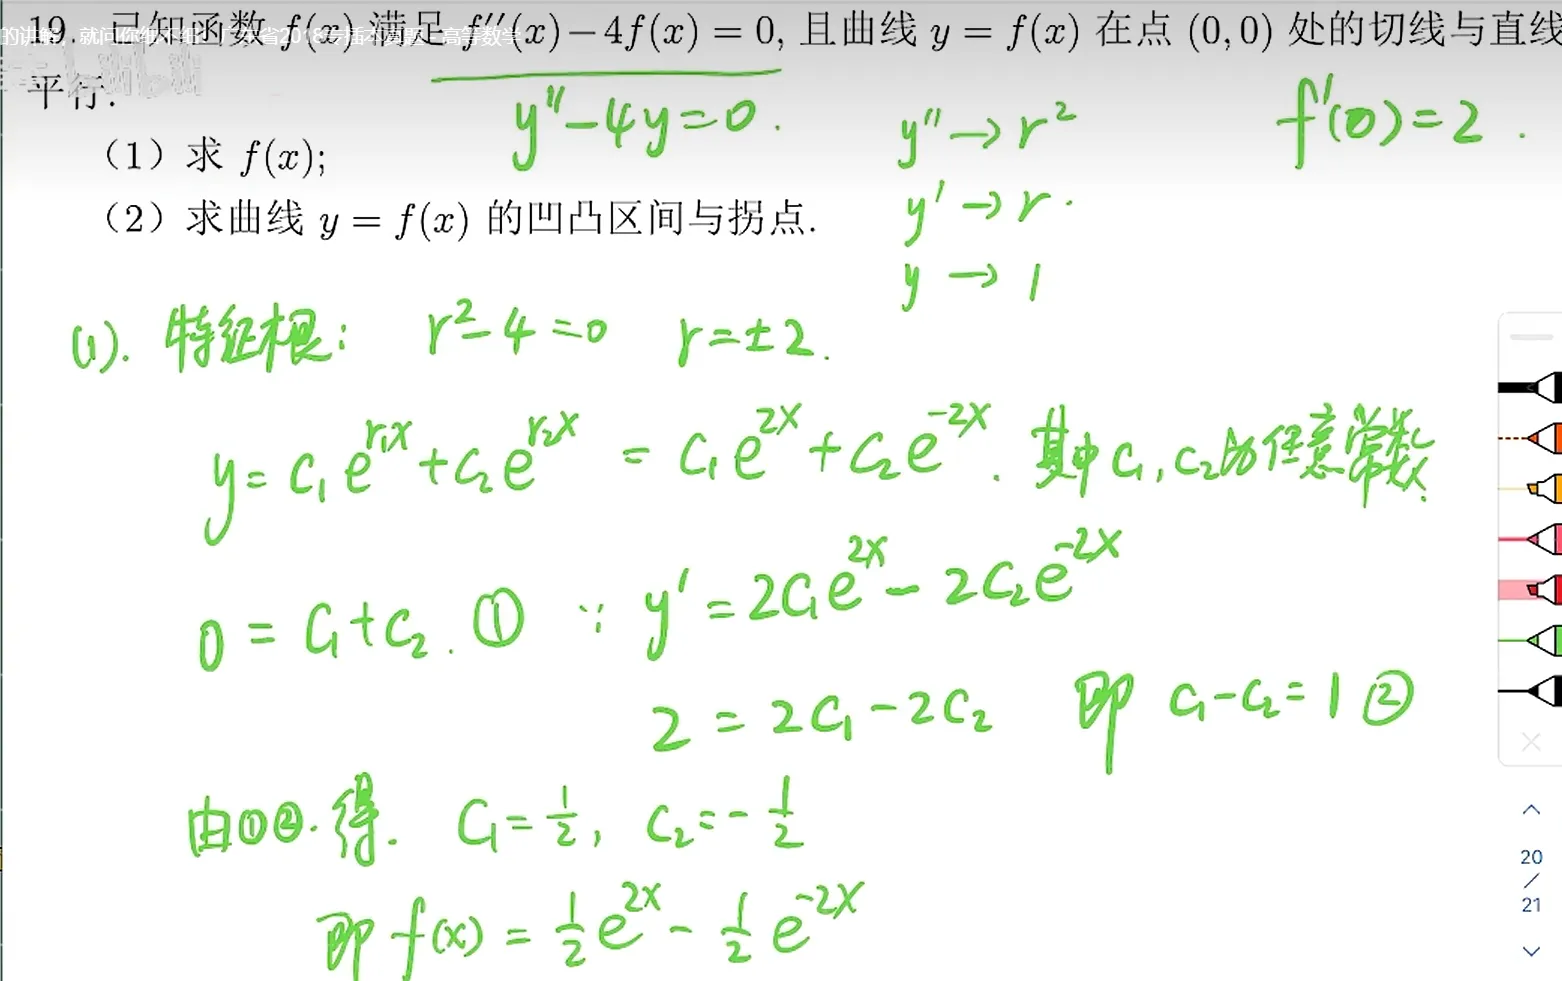 19. 已知函数 f(x) 满足 f''(x) − 4f(x) = 0, 且曲线 y = f(x) 在点 (0, 0) 处的切线与直线
平行.
y'' − 4y = 0.
f'(0) = 2.
y'' → r²
y' → r.
y → 1
（1）求 f(x);
（2）求曲线 y = f(x) 的凹凸区间与拐点.
(1). 特征根： r² − 4 = 0 r = ±2.
y = C₁e^{r₁x} + C₂e^{r₂x} = C₁e^{2x} + C₂e^{−2x}. 其中 C₁, C₂为任意常数.
0 = C₁ + C₂. ① ∵ y' = 2C₁e^{2x} − 2C₂e^{−2x}
2 = 2C₁ − 2C₂ 即 C₁ − C₂ = 1 ②
由①②. 得. C₁ = 1/2, C₂ = −1/2
即 f(x) = 1/2 e^{2x} − 1/2 e^{−2x}
20
/
21